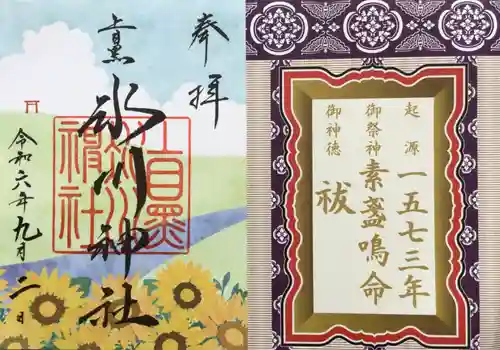 奉拝
上目黒
氷川神社
上目黒氷川神社
令和六年九月二日
起源 一五七三年
御祭神 素盞鳴命
御神徳 祓